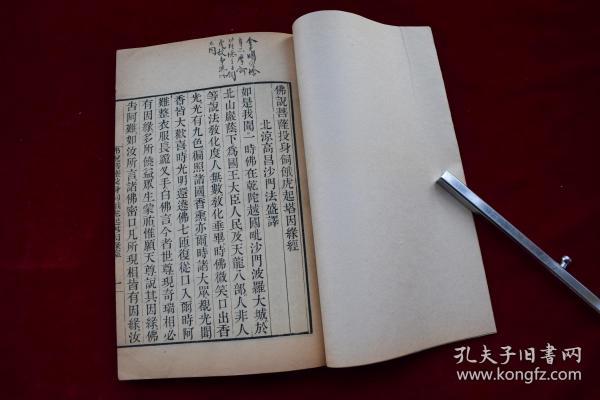 佛說菩薩投身飼餓虎起塔因緣經
北涼高昌沙門法盛譯
如是我聞一時佛在乾陀越國毗沙門波羅大城於
北山巖蔭下為國王大臣人民及天龍八部人非人
等說法教化度人無數教化垂畢時佛微笑口出香
光光有九色徧照諸國香熏亦爾時諸大眾覩光聞
香皆大歡喜時光明還遶佛七匝復從口入爾時阿
難整衣服長跪叉手白佛言今者世尊現奇瑞相必
有因緣多所饒益眾生蒙祐惟願天尊說其因緣佛
告阿難如汝所言諸佛密口凡所現相皆有因緣汝
孔夫子旧书网
www.kongfz.com